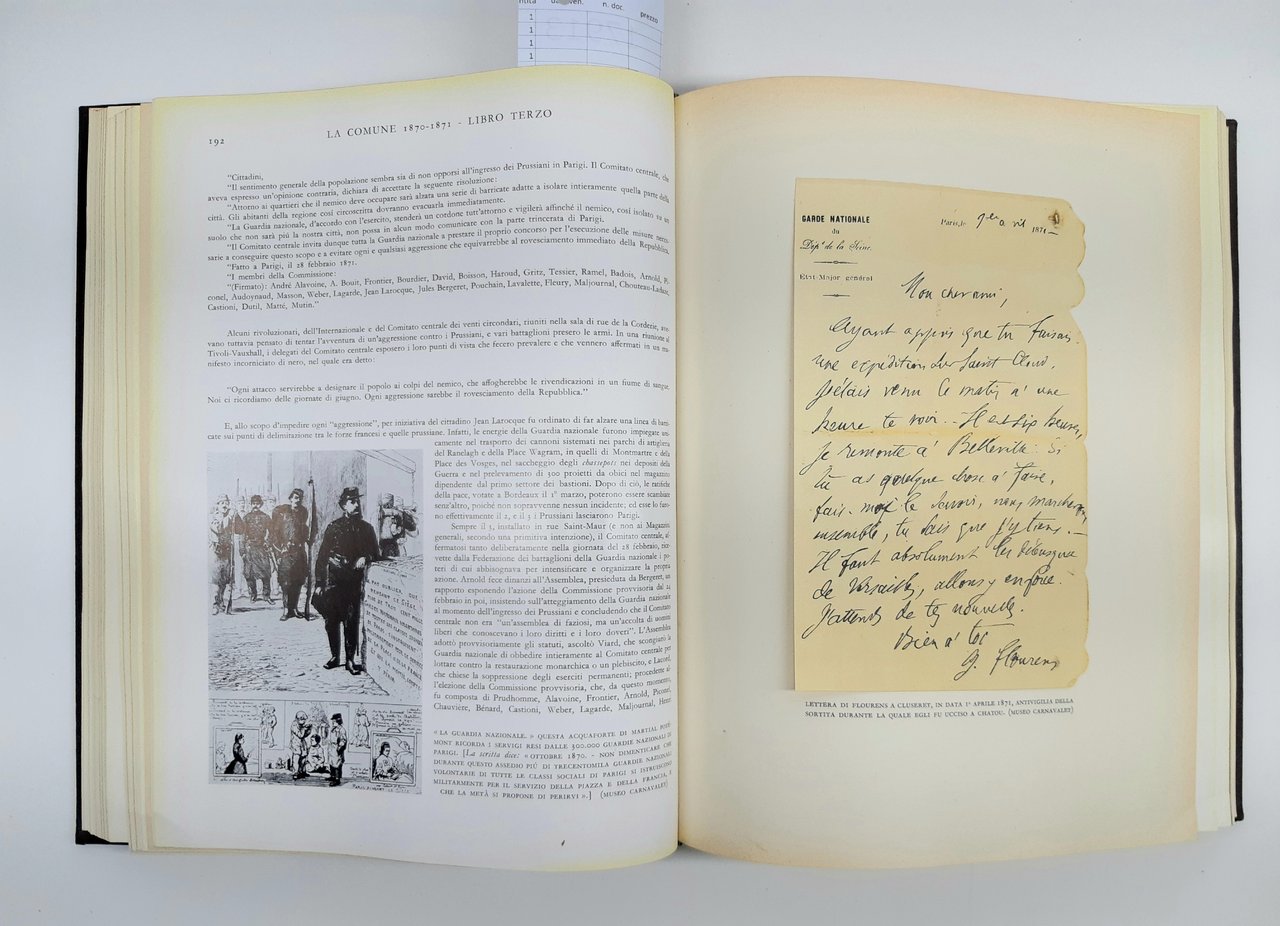 ven.
n. doc.
prezzo
1
1
1
1
192
LA COMUNE 1870-1871 - LIBRO TERZO
“Cittadini,
“Il sentimento generale della popolazione sembra sia di non opporsi all'ingresso dei Prussiani in Parigi. Il Comitato centrale, che
aveva espresso un'opinione contraria, dichiara di accettare la seguente risoluzione:
“Attorno ai quartieri che il nemico deve occupare sarà alzata una serie di barricate adatte a isolare intieramente quella parte della
città. Gli abitanti della regione così circoscritta dovranno evacuarla immediatamente.
“La Guardia nazionale, d'accordo con l'esercito, stenderà un cordone tutt'attorno e vigilerà affinché il nemico, così isolato su un
suolo che non sarà più la nostra città, non possa in alcun modo comunicare con la parte trincerata di Parigi.
“Il Comitato centrale invita dunque tutta la Guardia nazionale a prestare il proprio concorso per l'esecuzione delle misure neces-
sarie a conseguire questo scopo e a evitare ogni e qualsiasi aggressione che equivarrebbe al rovesciamento immediato della Repubblica.
“Fatto a Parigi, il 28 febbraio 1871.
“I membri della Commissione:
“(Firmato): André Alavoine, A. Bouit, Frontier, Bourdier, David, Boisson, Haroud, Gritz, Tessier, Ramel, Badois, Arnold, Pi-
conel, Audoynaud, Masson, Weber, Lagarde, Jean Larocque, Jules Bergeret, Pouchain, Lavalette, Fleury, Maljournal, Chouteau,
Castioni, Dutil, Matté, Mutin.”
Alcuni rivoluzionari, dell'Internazionale e del Comitato centrale dei venti circondari, riuniti nella sala di rue de la Corderie, ave-
vano tuttavia pensato di tentar l'avventura di un'aggressione contro i Prussiani, e vari battaglioni presero le armi. In una riunione al
Tivoli-Vauxhall, i delegati del Comitato centrale esposero i loro punti di vista che fecero prevalere e che vennero affermati in un ma-
nifesto incorniciato di nero, nel quale era detto:
“Ogni attacco servirebbe a designare il popolo ai colpi del nemico, che affogherebbe le rivendicazioni in un fiume di sangue.
Noi ci ricordiamo delle giornate di giugno. Ogni aggressione sarebbe il rovesciamento della Repubblica.”
E, allo scopo d'impedire ogni “aggressione”, per iniziativa del cittadino Jean Larocque fu ordinato di far alzare una linea di barri-
cate sui punti di delimitazione tra le forze francesi e quelle prussiane. Infatti, le energie della Guardia nazionale furono impiegate uni-
camente nel trasporto dei cannoni sistemati nei parchi di artiglieria
del Ranelagh e della Place Wagram, in quelli di Montmartre e della
Place des Vosges, nel saccheggio degli chassepots nei depositi della
Guerra e nel prelevamento di 300 projetti da obici nel magazzino
dipendente dal primo settore dei bastioni. Dopo di ciò, le ratifiche
della pace, votate a Bordeaux il 1° marzo, poterono essere scambiate
senz'altro, poiché non sopravvenne nessun incidente; ed esse lo furo-
no effettivamente il 2, e il 3 i Prussiani lasciarono Parigi.
Sempre il 3, installato in rue Saint-Maur (e non ai Magazzini
generali, secondo una primitiva intenzione), il Comitato centrale, af-
fermatosi tanto deliberatamente nella giornata del 28 febbraio, rice-
vette dalla Federazione dei battaglioni della Guardia nazionale i po-
teri di cui abbisognava per intensificare e organizzare la propria
azione. Arnold fece dinanzi all'Assemblea, presieduta da Bergeret, un
rapporto esponendo l'azione della Commissione provvisoria dal 24
febbraio in poi, insistendo sull'atteggiamento della Guardia nazionale
al momento dell'ingresso dei Prussiani e concludendo che il Comitato
centrale non era “un'assemblea di faziosi, ma un'accolta di uomini
liberi che conoscevano i loro diritti e i loro doveri”. L'Assemblea
adottò provvisoriamente gli statuti, ascoltò Viard, che scongiurò la
Guardia nazionale di obbedire intieramente al Comitato centrale per
lottare contro la restaurazione monarchica o un plebiscito, e Lacord,
che chiese la soppressione degli eserciti permanenti; procedette al-
l'elezione della Commissione provvisoria, che, da questo momento,
fu composta di Prudhomme, Alavoine, Frontier, Arnold, Piconel,
Chauvière, Bénard, Castioni, Weber, Lagarde, Maljournal, Henri
« LA GUARDIA NAZIONALE. » QUESTA ACQUAFORTE DI MARTIAL POTÉ-
MONT RICORDA I SERVIGI RESI DALLE 300.000 GUARDIE NAZIONALI DI
PARIGI. [La scritta dice: « OTTOBRE 1870. - NON DIMENTICARE CHE
DURANTE QUESTO ASSEDIO PIÚ DI TRECENTOMILA GUARDIE NAZIONALI
VOLONTARIE DI TUTTE LE CLASSI SOCIALI DI PARIGI SI ISTRUISCONO
MILITARMENTE PER IL SERVIZIO DELLA PIAZZA E DELLA FRANCIA, E
CHE LA METÀ SI PROPONE DI PERIRVI ».] (MUSEO CARNAVALET)
GARDE NATIONALE
du
Dépt de la Seine.
État-Major général
Paris, le 1er avril 1871
Mon cher ami,
Ayant appris que tu faisais
une expédition sur Saint Cloud,
j'étais venu le matin à une
heure te voir. - Il est six heures,
je remonte à Belleville. Si
tu as quelque chose à faire,
fais-moi le savoir, nous marcherons
ensemble, tu sais que j'y tiens. -
Il faut absolument les débusquer
de Versailles, allons y en force.
J'attends de tes nouvelles.
Bien à toi
G. Flourens
LETTERA DI FLOURENS A CLUSERET, IN DATA 1° APRILE 1871, ANTIVIGILIA DELLA
SORTITA DURANTE LA QUALE EGLI FU UCCISO A CHATOU. (MUSEO CARNAVALET)